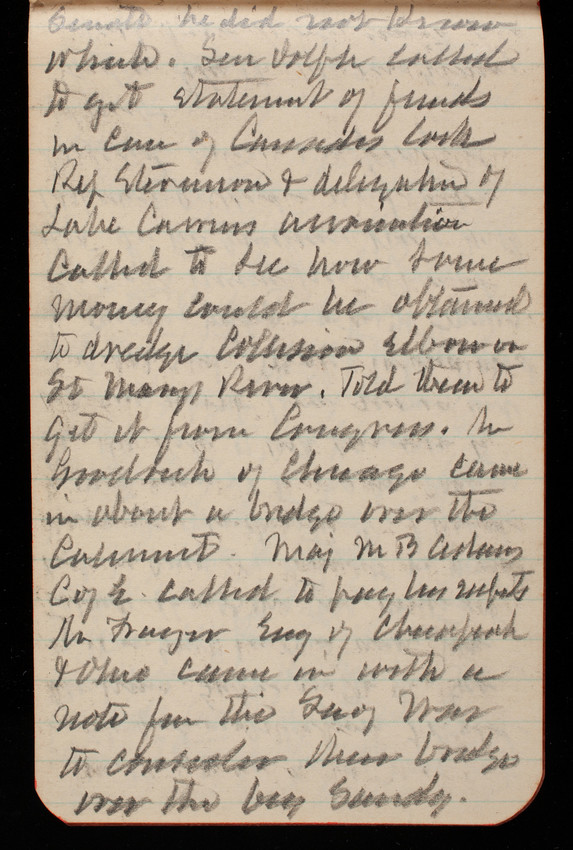 Senate he did not know
which. Sen Dolph called
to get statement of funds
in case of Cascades lock
Rep Stevenson & delegation of
Lake Carriers association
called to see how some
money could be obtained
to dredge Collision Elbow in
St Marys River. Told them to
get it from Congress. Mr
Goodrich of Chicago came
in about a bridge over the
Calumet. Maj M B Adams
C of E called to pay his respects
Mr Frazer Eng of Chesapeak
& Ohio came in with a
note from the Secy War
to consider their bridge
over the big Sandy.